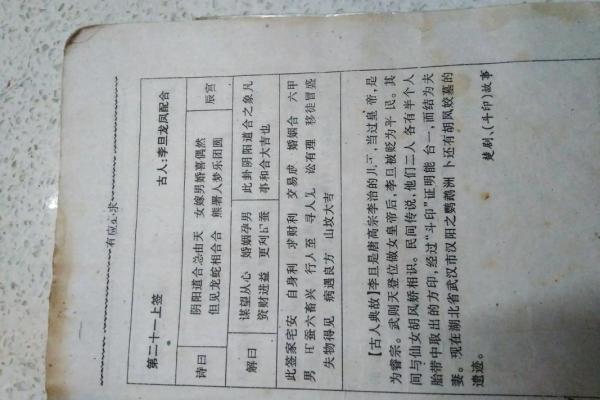 有应必求
第二十一上签 古人:李旦龙凤配合
诗曰 阴阳道合总由天 女嫁男婚喜偶然 辰宫
但见龙蛇相合合 熊罴人梦乐团圆
解曰 谋望从心 婚姻孕男 此卦阴阳道合之象凡
资财进益 更利 蚕 事和合大吉也
此签家宅安 自身利 求财利 交易成 婚姻合 六甲
男 蚕六畜兴 行人至 寻人见 讼有理 移徙冒盛
失物得见 病遇良方 山坟大吉
【古人典故】李旦是唐高宗李治的儿子,当过皇帝,是
为睿宗。武则天登位做女皇帝后,李旦被贬为平民。其
间与仙女胡凤娇相识。民间传说,他们二人各有半个人
胎带中取出的方印,经过“斗印”证明能 台一,而结为夫
妻。现在湖北省武汉市汉阳之鹦鹉洲 卜还有胡凤姣墓的
遗迹。
楚剧、《斗印》故事